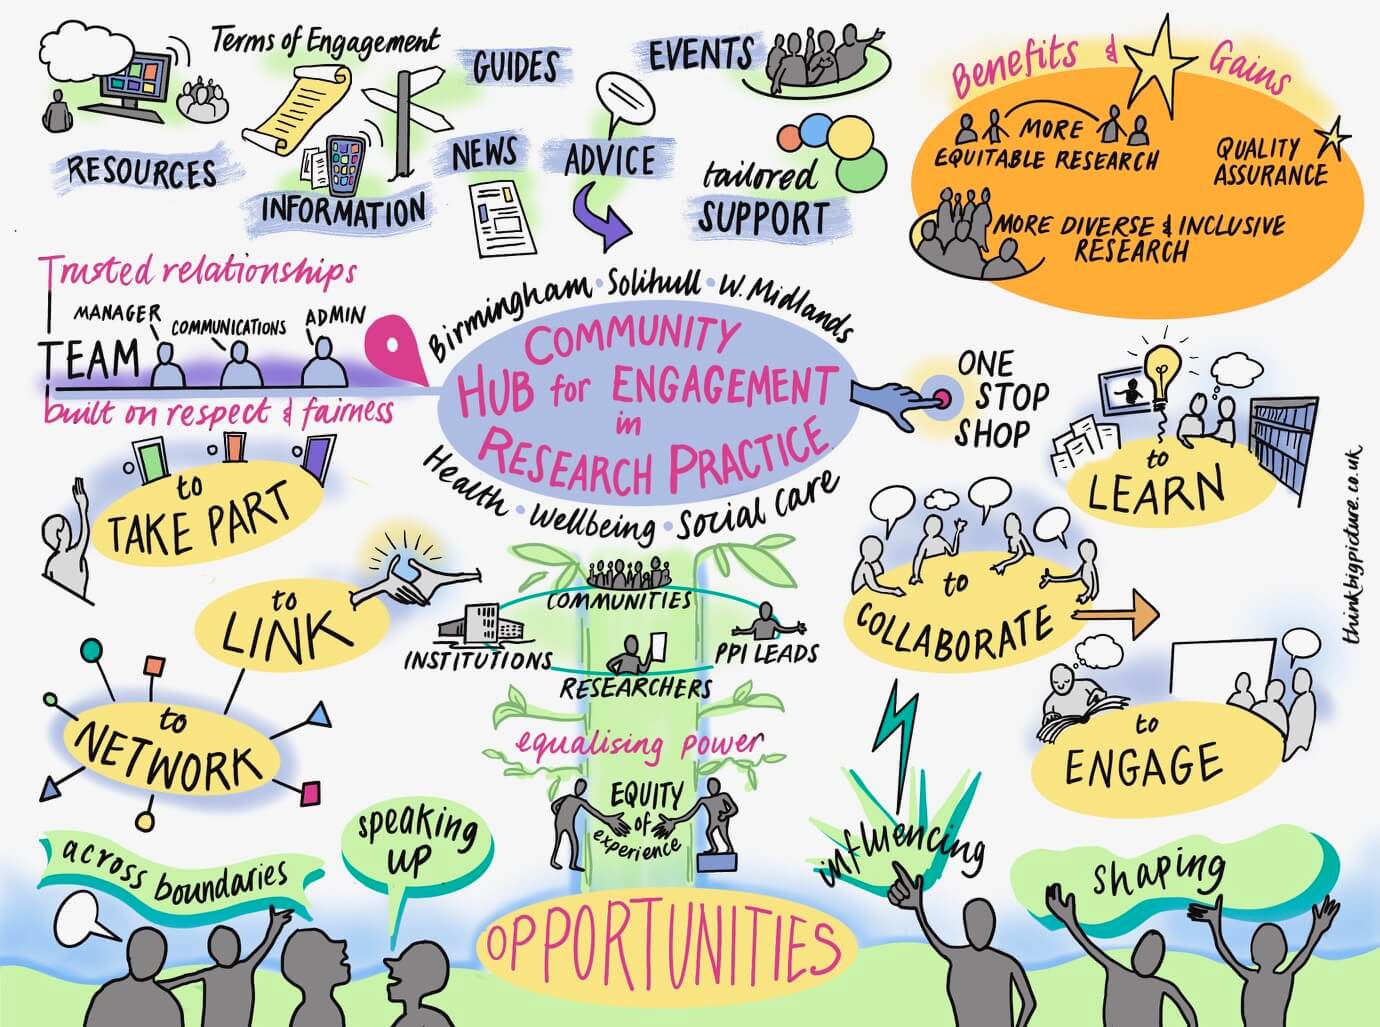 Terms of Engagement
GUIDES
EVENTS
RESOURCES
INFORMATION
NEWS
ADVICE
tailored
SUPPORT
Benefits & Gains
MORE
EQUITABLE RESEARCH
QUALITY
ASSURANCE
MORE DIVERSE & INCLUSIVE
RESEARCH
Trusted relationships
MANAGER
COMMUNICATIONS
ADMIN
TEAM
built on respect & fairness
Birmingham • Solihull • W. Midlands
COMMUNITY
HUB for ENGAGEMENT
in
RESEARCH PRACTICE
Health • Wellbeing • Social Care
ONE
STOP
SHOP
to
TAKE PART
to
LINK
to
NETWORK
COMMUNITIES
INSTITUTIONS
PPI LEADS
RESEARCHERS
equalising power
EQUITY
of
experience
to
LEARN
to
COLLABORATE
to
ENGAGE
thinkbigpicture.co.uk
across boundaries
speaking
up
influencing
shaping
OPPORTUNITIES